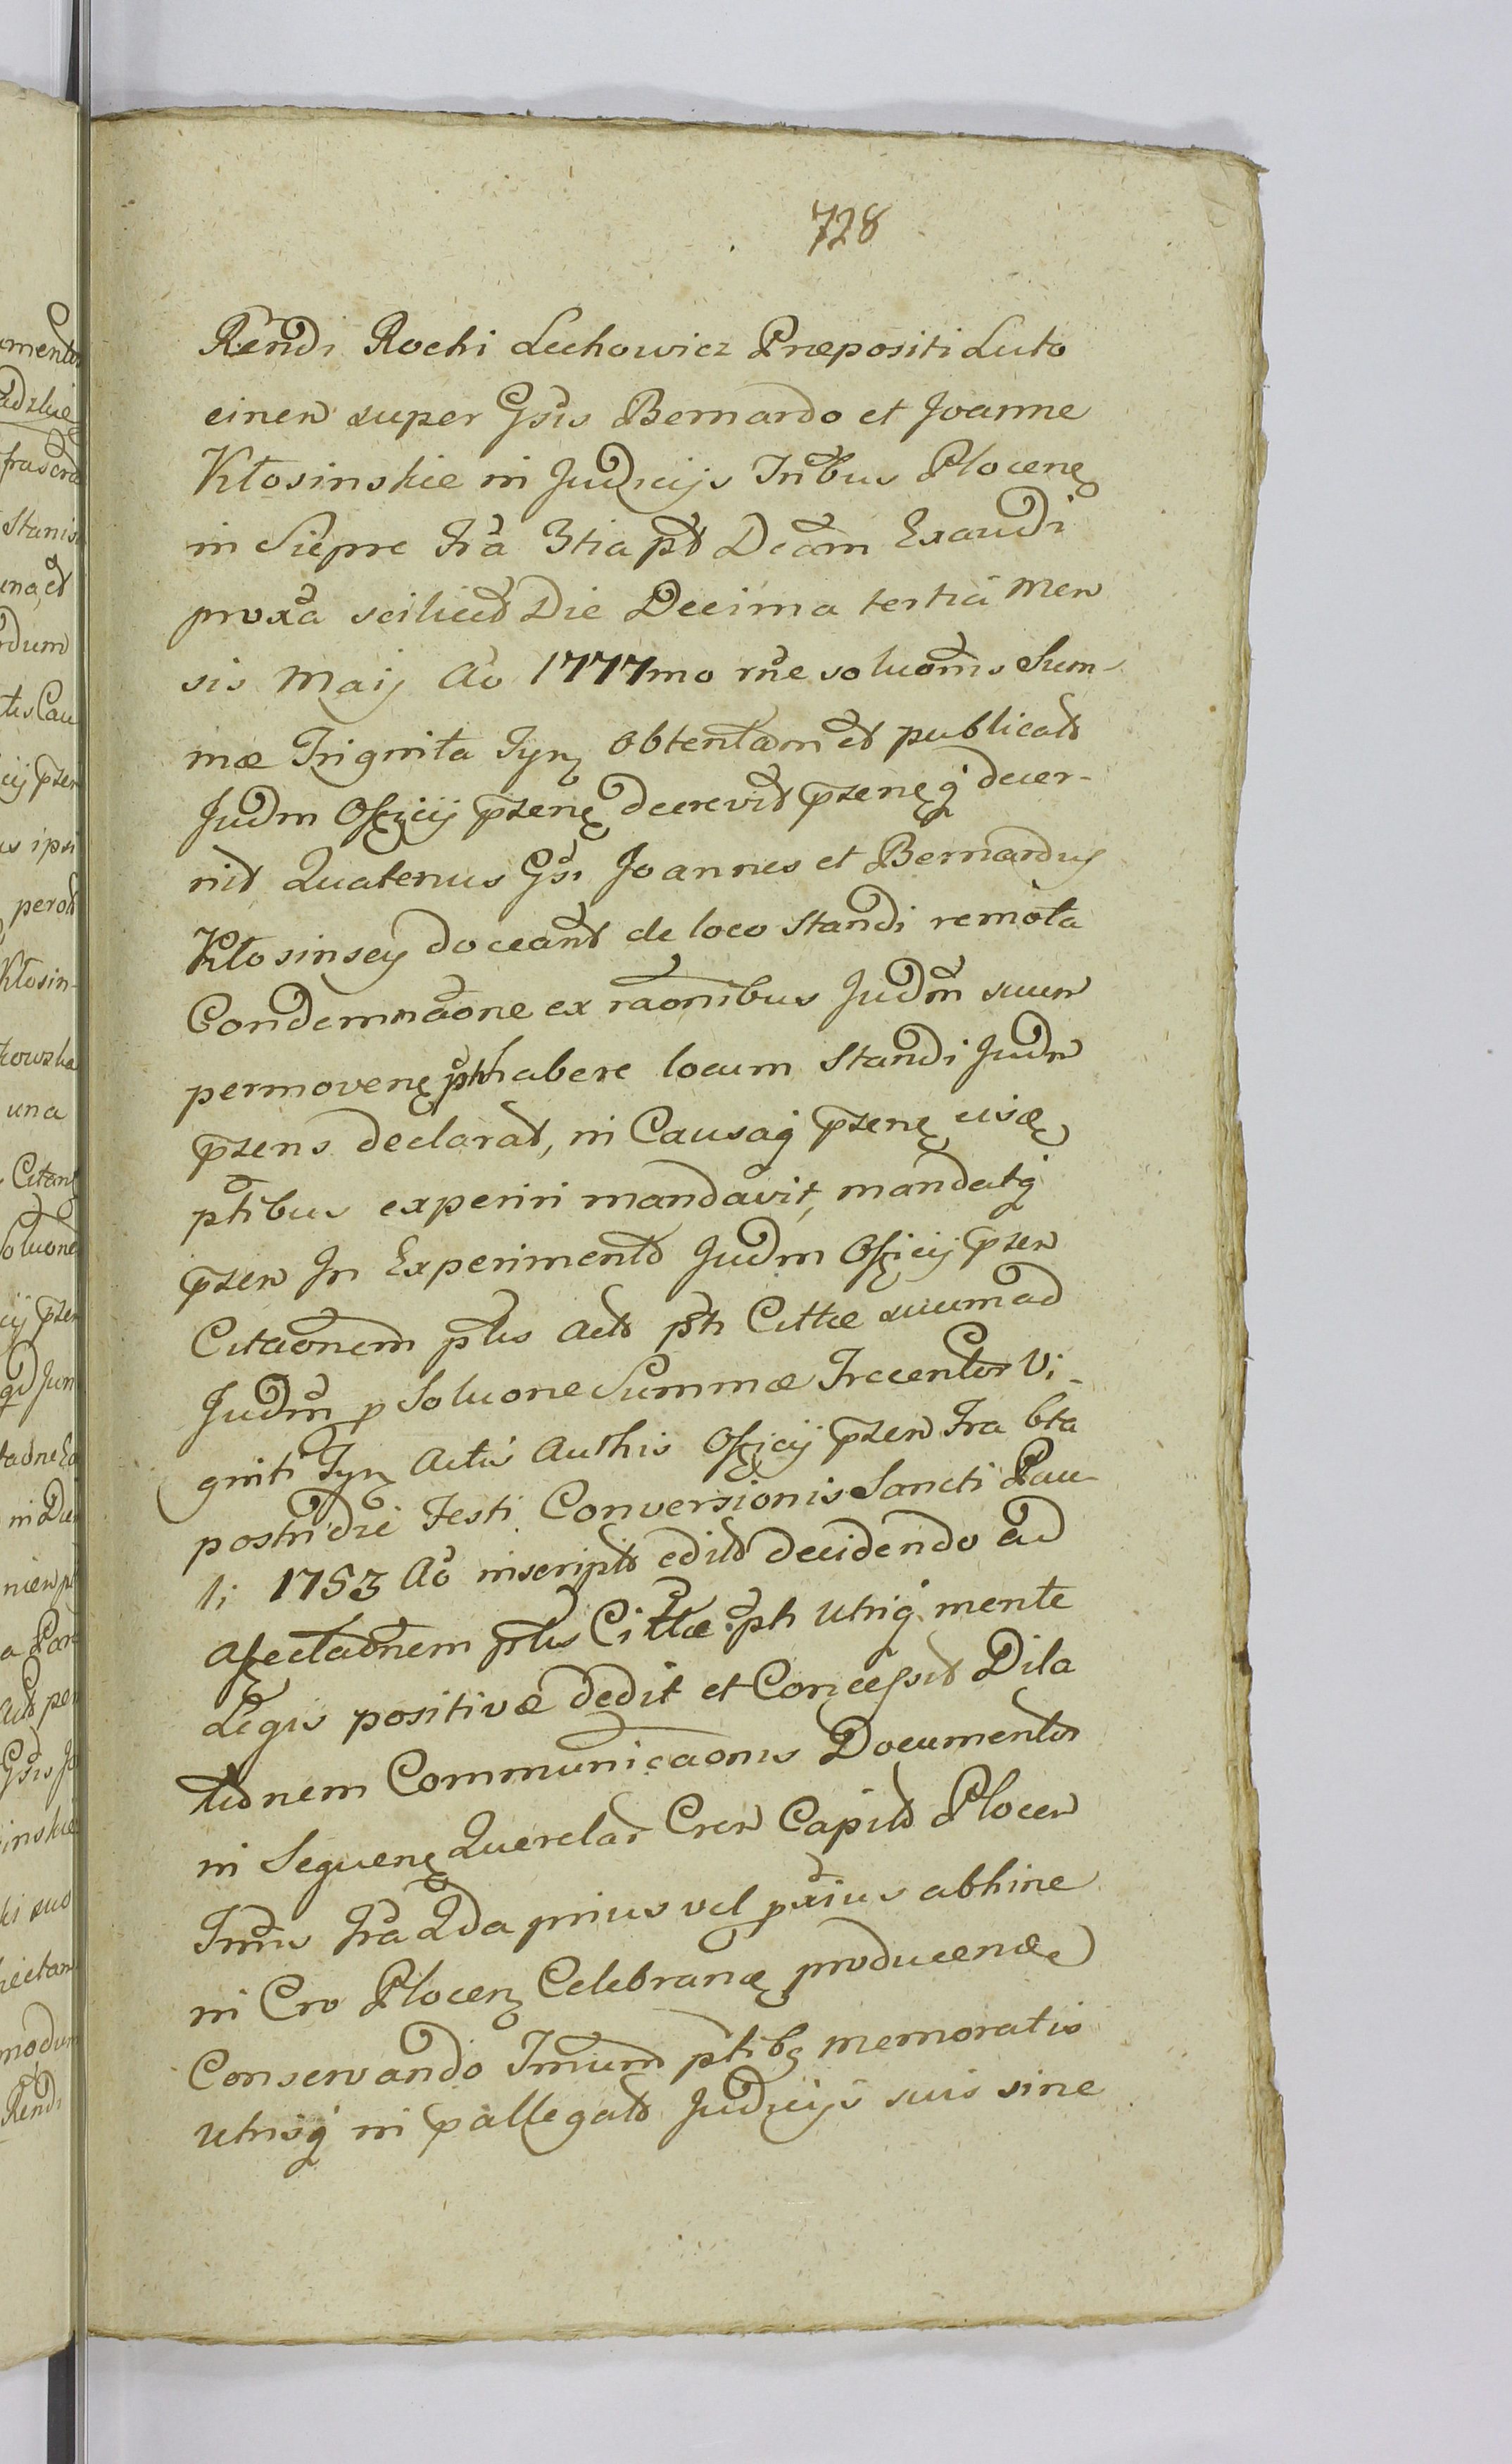 728
Rendi Rochi Lechowicz Præpositi Luto
cinen super Gsis Bernardo et Joanne
Kłosinskie in Judicijs Tribus Plocenę
in Sierpre Fra 3tia pt Dcam Exaudi
proxa scilicet Die Decima tertia Men
sis Maij Ao 1777mo rne soluonis Sum-
mæ Triginta Tyn obtentam et publicat
Judm Officij pzenę decrevit pzenęq decer-
nit Quatenus Gsi Joannes et Bernardus
Kłosinscy doceant de loco standi remota
Condemnaone ex raonibus Judm suum
permovenę pth habere locum standi Judm
pzens declarat, in Causaq pzenę eisdę
ptibus experiri mandavit, mandatq
pzen In Experimento Judm Officij pzen
Citaonem ptis Act pth Cittæ suum ad
Judm p Soluone Summæ Trecentor Vi-
ginti Tyn Actis Authis Officij pzen Fra 6ta
postridie Festi Conversionis Sancti Pau-
li 1753 Ao inscript edit decidendo ad
affectaonem ptis Cittæ pth Utriq mente
Legis positivæ dedit et Concessit Dila
tionem Communicaonis Documentor
in Sequenę Querelar Cren Capit Plocen
Tmis Fra Qda prius vel pxius abhinc
in Cro Plocen Celebranę producenæ
Conservando Tmum ptibq memoratis
Utrisq in pallegat Judicijs suis sine
amento
Stanis
Kłosin-
una
inskie
Rendi